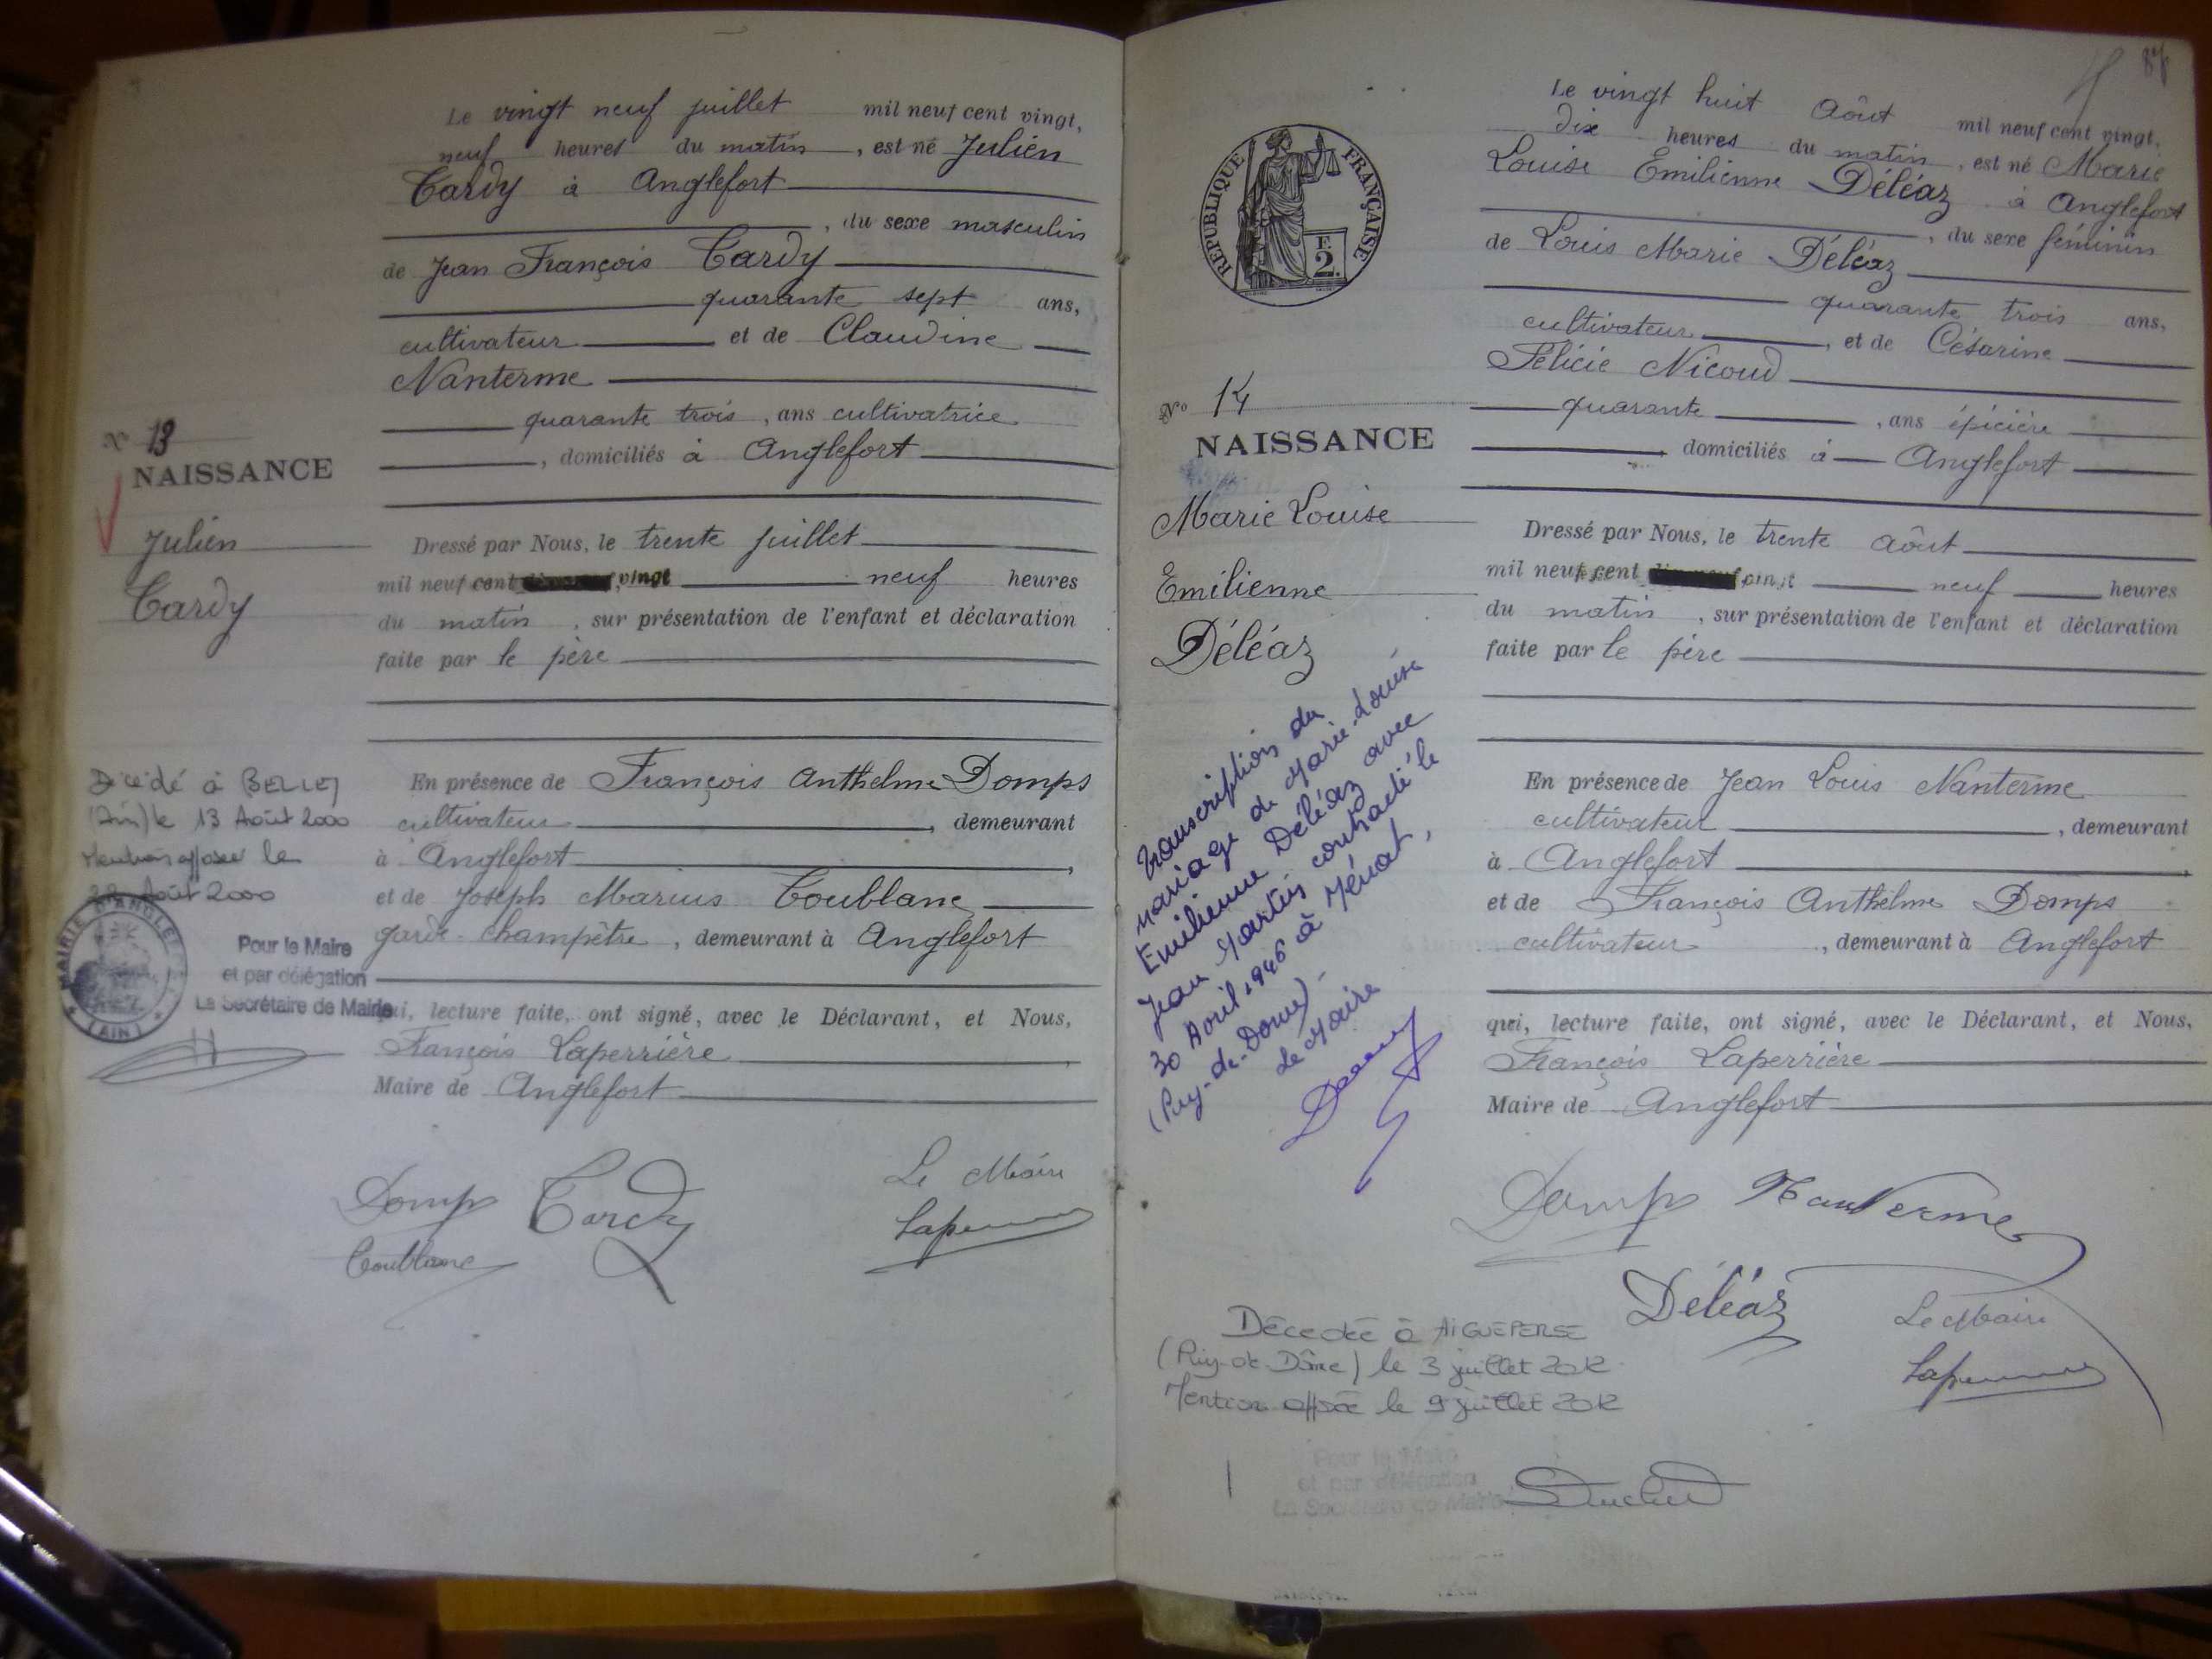 Le vingt neuf juillet mil neuf cent vingt,
neuf heures du matin, est né Julien
Tardy à Anglefort
, du sexe masculin
de Jean François Tardy
quarante sept ans,
cultivateur et de Claudine
Nanterme
quarante trois, ans cultivatrice
, domiciliés à Anglefort
No 13
NAISSANCE
Julien
Tardy
Dressé par Nous, le trente juillet
mil neuf cent vingt neuf heures
du matin, sur présentation de l'enfant et déclaration
faite par le père
Décédé à BELLEY
(Ain) le 13 Août 2000
Mention apposée le
Août 2000
MAIRIE D'ANGLEFORT
(AIN)
Pour le Maire
et par délégation
La Secrétaire de Mairie
En présence de François Anthelme Domps
cultivateur, demeurant
à Anglefort,
et de Joseph Marius Coublanc
garde-champêtre, demeurant à Anglefort
qui, lecture faite, ont signé, avec le Déclarant, et Nous,
François Laperrière,
Maire de Anglefort
Domps Tardy Le Maire
Coublanc
87
Le vingt huit Août mil neuf cent vingt,
dix heures du matin, est né Marie
Louise Emilienne Déléaz à Anglefort
, du sexe féminin
de Louis Marie Déléaz
quarante trois ans,
cultivateur, et de Césarine
Félicie Nicoud
quarante, ans épicière
, domiciliés à Anglefort
RÉPUBLIQUE FRANÇAISE
F.
2.
No 14
NAISSANCE
Marie Louise
Emilienne
Déléaz
Dressé par Nous, le trente Août
mil neuf cent vingt neuf heures
du matin, sur présentation de l'enfant et déclaration
faite par le père
Transcription du
mariage de Marie-Louise
Emilienne Déléaz avec
Jean Martin contracté le
30 Avril 1946 à Menat,
(Puy-de-Dôme).
Le Maire
En présence de Jean Louis Nanterme
cultivateur, demeurant
à Anglefort,
et de François Anthelme Domps
cultivateur, demeurant à Anglefort
qui, lecture faite, ont signé, avec le Déclarant, et Nous,
François Laperrière
Maire de Anglefort
Domps Nanterme
Déléaz Le Maire
Décédée à AIGUEPERSE
(Puy-de-Dôme) le 3 juillet 2012
Mention apposée le 9 juillet 2012
Pour le Maire
et par délégation
La Secrétaire de Mairie